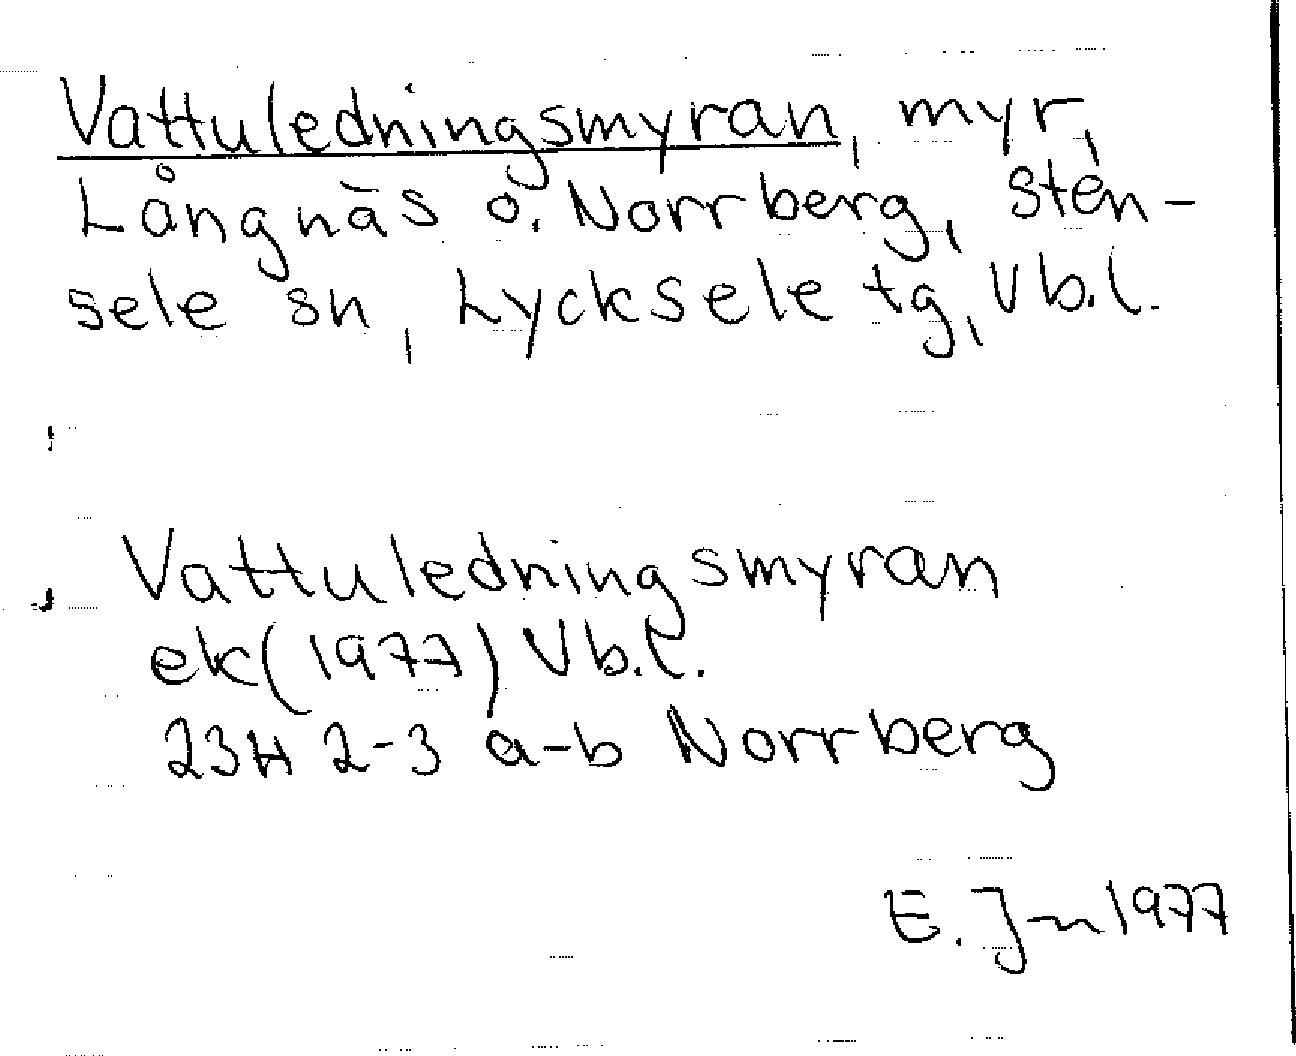 Vattuledningsmyran, myr,
Långnäs o. Norrberg, Sten-
sele sn, Lycksele tg, Vb.l.
Vattuledningsmyran
ek(1977) Vb.l.
23H 2-3 a-b Norrberg
E. J-n 1977